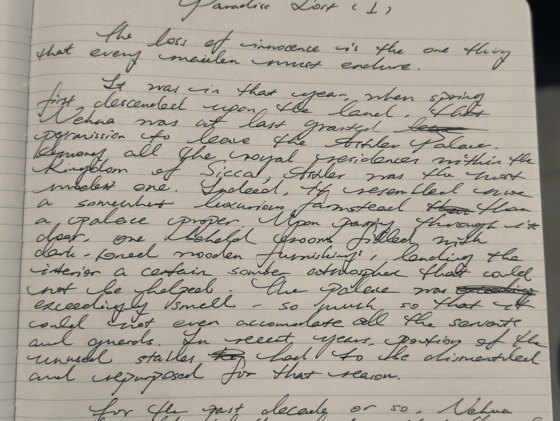 Paradise Lost (1)
The loss of innocence is the one thing
that every maiden must endure.
It was in that year, when spring
first descended upon the land, that
Nehua was at last granted
permission to leave the Palace.
Among all the royal residences within the
Kingdom of Sicca, was the most
modest one. Indeed, it resembled more
a somewhat luxurious farmstead than
a palace proper. Upon passing through its
door, one beheld rooms filled with
dark-toned wooden furnishings, lending the
interior a certain somber atmosphere that could
not be helped. The palace was
exceedingly small - so much so that it
could not even accomodate all the servants
and guards. In recent years, portion of the
unused stables had to be dismantled
and repurposed for that reason.
For the past decade or so, Nehua